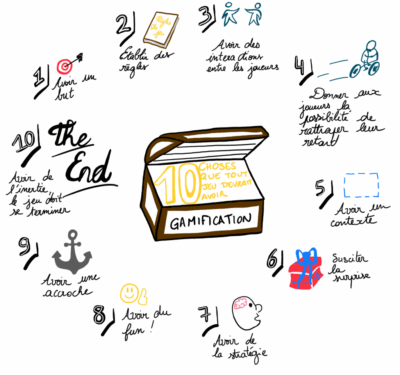 10 CHOSES
QUE TOUT
JEU DEVRAIT
AVOIR
GAMIFICATION
1)
Avoir un
but
2)
Règle du
jeu
Établir des
règles
3)
Avoir des
interactions
entre les joueurs
4)
Donner aux
joueurs la
possibilité de
rattraper leur
retard
5)
Avoir un
contexte
6)
Susciter
la
surprise
7)
Avoir de
la stratégie
8)
Avoir du
fun !
9)
Avoir une
accroche
10)
The
End
Avoir de
l'inertie,
le jeu doit
se terminer